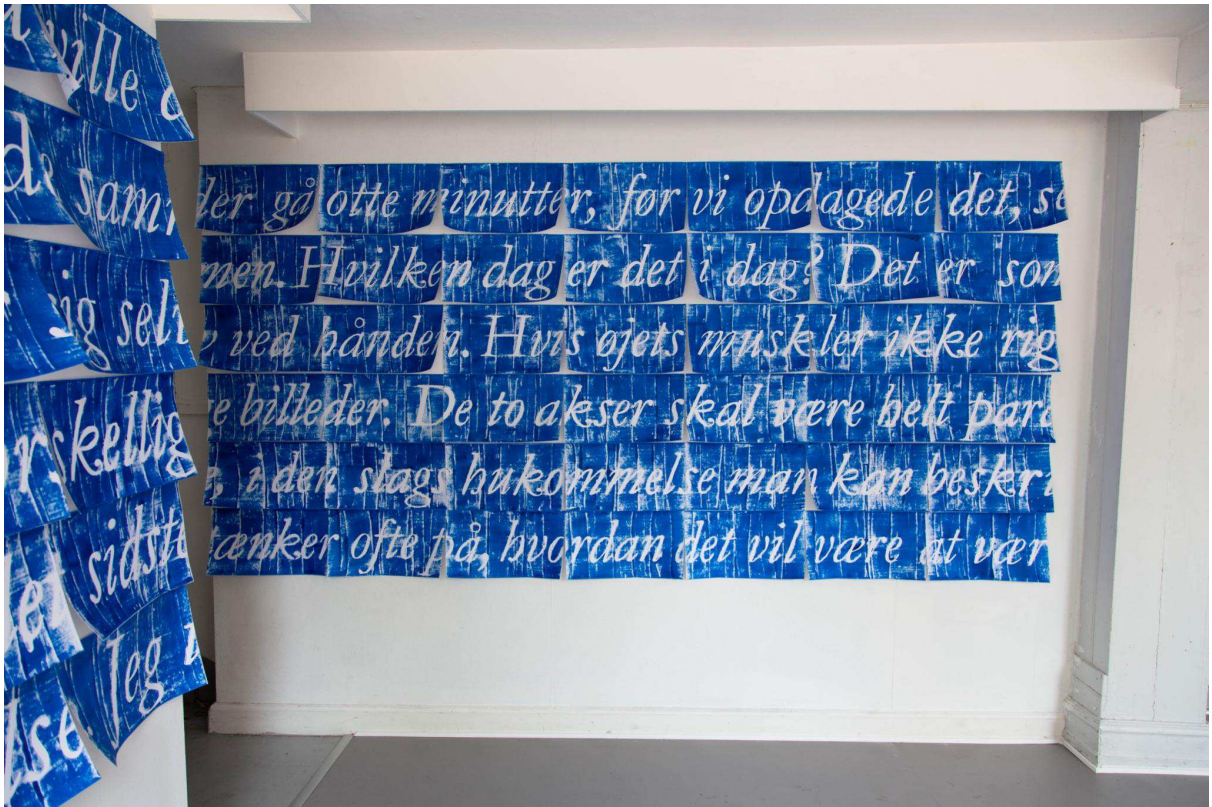 ville
de samm
sig selv
rskellig
sidste
Jeg
lse
der gå otte minutter, før vi opdagede det, se
men. Hvilken dag er det i dag? Det er som
v ved hånden. Hvis øjets muskler ikke rig
e billeder. De to akser skal være helt para
, i den slags hukommelse man kan beskri
ænker ofte på, hvordan det vil være at vær